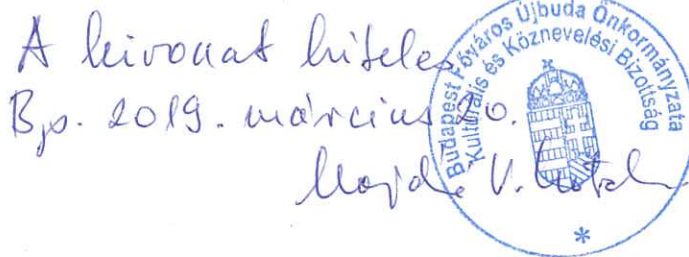 A kivonat hiteles
Bp. 2019. március 20.
V.
Budapest Főváros Újbuda Önkormányzata
Kulturális és Köznevelési Bizottság
*